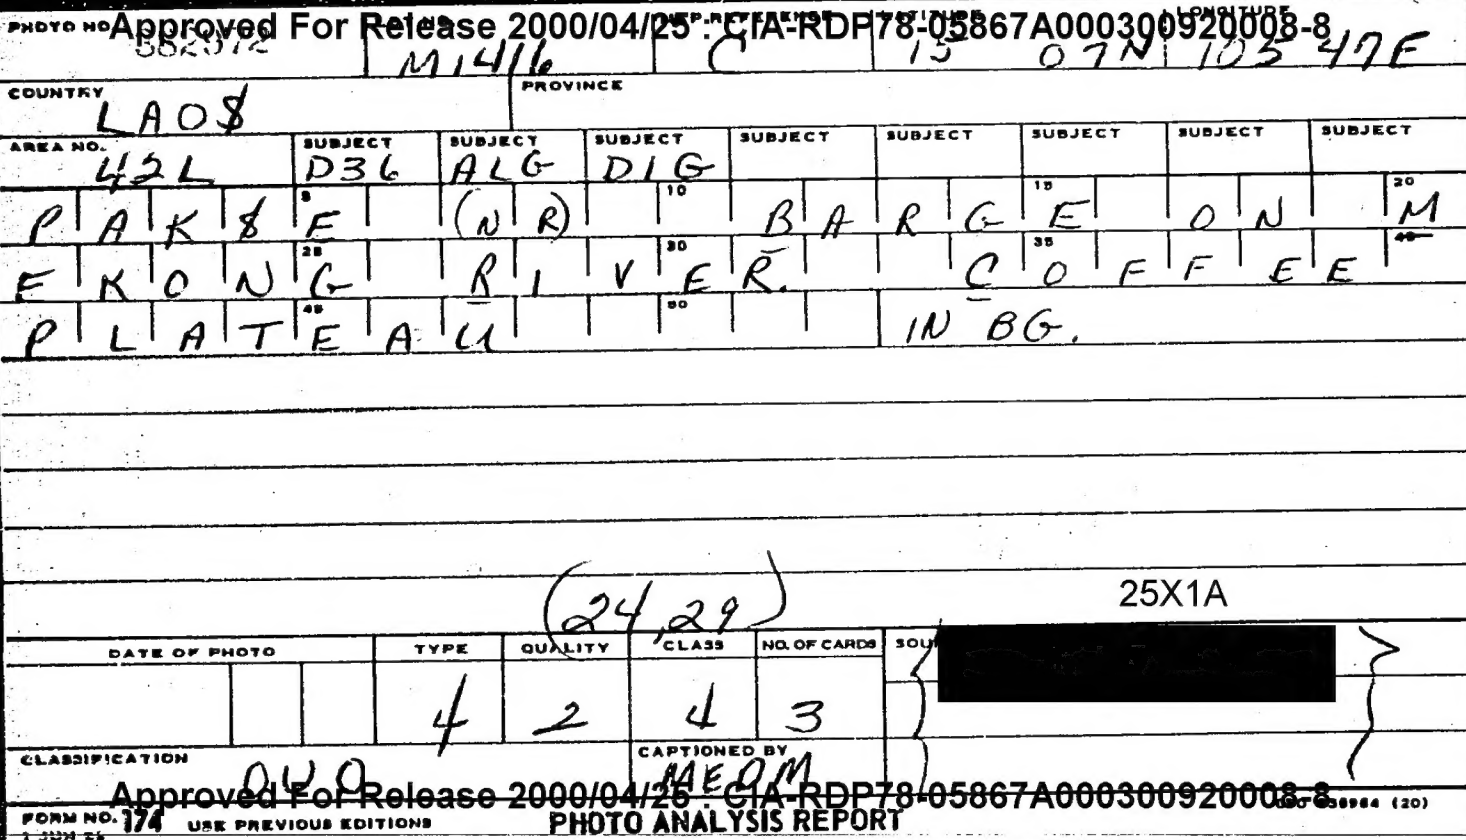 PHOTO NO. Approved For Release 2000/04/25 : CIA-RDP78-05867A000300920008-8
M1416 C 15 07N 105 47E
COUNTRY PROVINCE
LAO$
AREA NO. SUBJECT SUBJECT SUBJECT SUBJECT SUBJECT SUBJECT SUBJECT SUBJECT
42L D36 ALG DIG
5 10 15 20
PAK$E (NR) BARGE ON M
25 30 35 40
EKONG RIVER. COFFEE
45 50
PLATEAU IN BG.
(24,29) 25X1A
DATE OF PHOTO TYPE QUALITY CLASS NO. OF CARDS
4 2 4 3
CLASSIFICATION CAPTIONED BY
OUO
Approved For Release 2000/04/25 : CIA-RDP78-05867A000300920008-8
(20)
FORM NO. 174 USE PREVIOUS EDITIONS PHOTO ANALYSIS REPORT